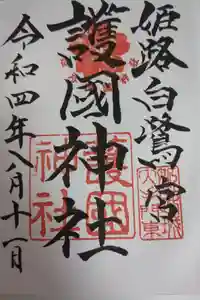 姫路白鷺宮
護國神社
令和四年八月十一日
護國
神社